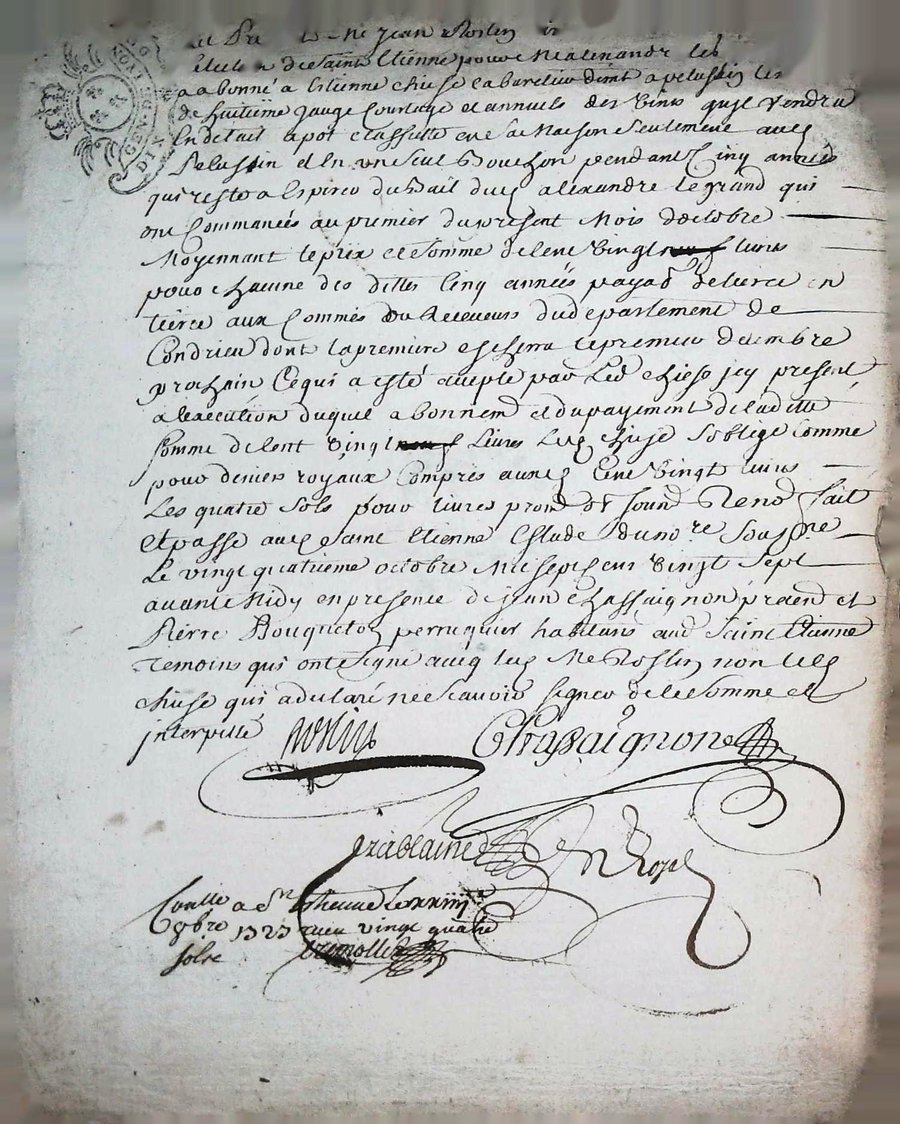 Me Jean Roslin
de Saint Etienne pour Me alexandre
a abonné a Etienne chieze cabaretier dem.t a pelussin les
de huitiième jauge courtage et annuels des vins quil vendra
En detail a pot et assiette en sa Maison seulement aud
Pelussin et En un seul Bouchon pendant Cinq années
qui reste a Expirer du Bail dud alexandre le grand qui
ont Commancés au premier du present Mois doctobre
Moyennant le prix et Somme de Cent Vingt livres
pour chacune des dittes Cinq années payab de tierce en
tierce aux Commis ou Receveurs du departement de
Condrieu dont la premiere escherra le premier decembre
prochain Ce qui a esté accepté par Led chieze jcy present
a lexecution duquel abonnem et du payement de laditte
somme de Cent Vingt Livres Led chieze soblige Comme
pour deniers royaux Compris auxd Cent Vingt livres
Les quatre sols pour livres prom obl soum Renon fait
Et passé aud Saint Etienne Estude du no.re Sousg.ne
Le vingt quatrieme octobre Mil sept cent Vingt sept
avant Midy en presence de jean chassaignon praticn et
Pierre Bouqueton perruquier habitans aud Saint Etienne
Temoins qui ont signé avec led Me Roslin non led
chieze qui a declaré ne scavoir signer de ce Sommé et
interpellé
Roslin Chassaignon
Contlle a St Etienne le xxiiij
8bre 1727 recu vingt quatre
sols